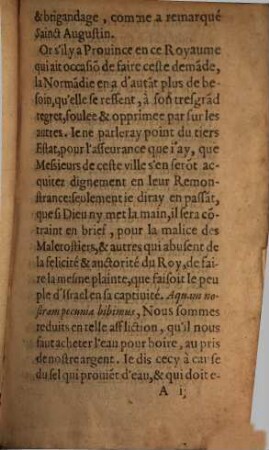 & brigandage, comme a remarqué
Sainct Augustin.
Or s'il y a Prouince en ce Royaume
qui ait occasiõ de faire ceste demãde,
la Normãdie en a d'autãt plus de be-
soin, qu'elle se ressent, à son tresgrãd
regret, foulee & opprimee par sur les
autres. Ie ne parleray point du tiers
Estat, pour l'asseurance que i'ay, que
Messieurs de ceste ville s'en serõt ac-
quitez dignement en leur Remon-
strance: seulement ie diray en passãt,
que si Dieu ny met la main, il sera cõ-
traint en brief, pour la malice des
Malerostiers, & autres qui abusent de
la felicité & auctorité du Roy, de fai-
re la mesme plainte, que faisoit le peu
ple d'Israel en sa captiuité. Aquam no-
stram pecunia bibimus, Nous sommes
reduits en telle affliction, qu'il nous
faut acheter l'eau pour boire, au pris
de nostre argent. Ie dis cecy à cause
du sel qui prouiẽt d'eau, & qui doit e-
A ij